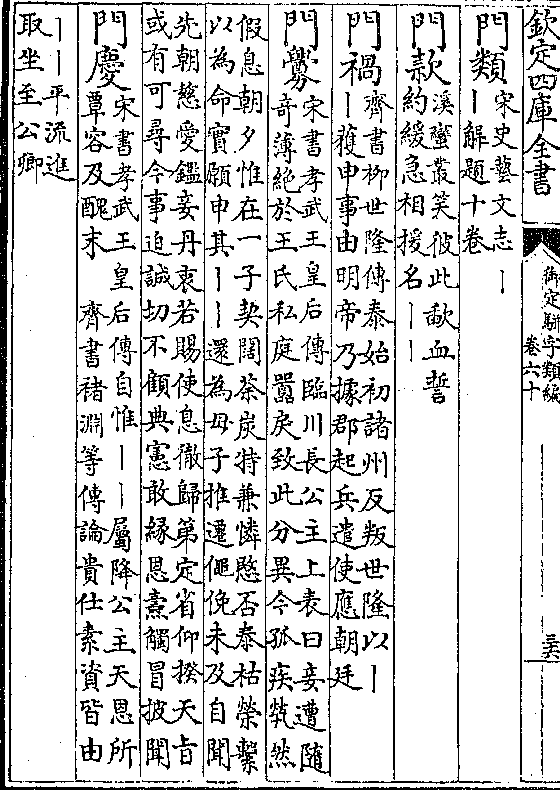 欽定四庫全書
御定駢字類編
卷六十
三六
門類
宋史藝文志丨
丨解題十卷
門款
溪蠻叢笑彼此歃血誓
約緩急相援名丨丨
門禍
齊書柳世隆傳泰始初諸州反叛世隆以丨
丨獲申事由明帝乃據郡起兵遣使應朝廷
門釁
宋書孝武王皇后傳臨川長公主上表曰妾遭隨
奇薄絶於王氏私庭囂戾致此分異今孤疾煢然
假息朝夕惟在一子契闊荼炭特兼憐愍否泰枯榮繫
以為命實願申其丨丨還為母子推遷僶俛未及自聞
先朝慈愛鑑妾丹衷若賜使息徹歸第定省仰揆天旨
或有可尋今事迫誠切不顧典憲敢緣恩燾觸冒披聞
門慶
宋書孝武王皇后傳自惟丨丨屬降公主天恩所
覃容及醜末　齊書褚淵等傳論貴仕素資皆由
丨丨平流進
取坐至公卿